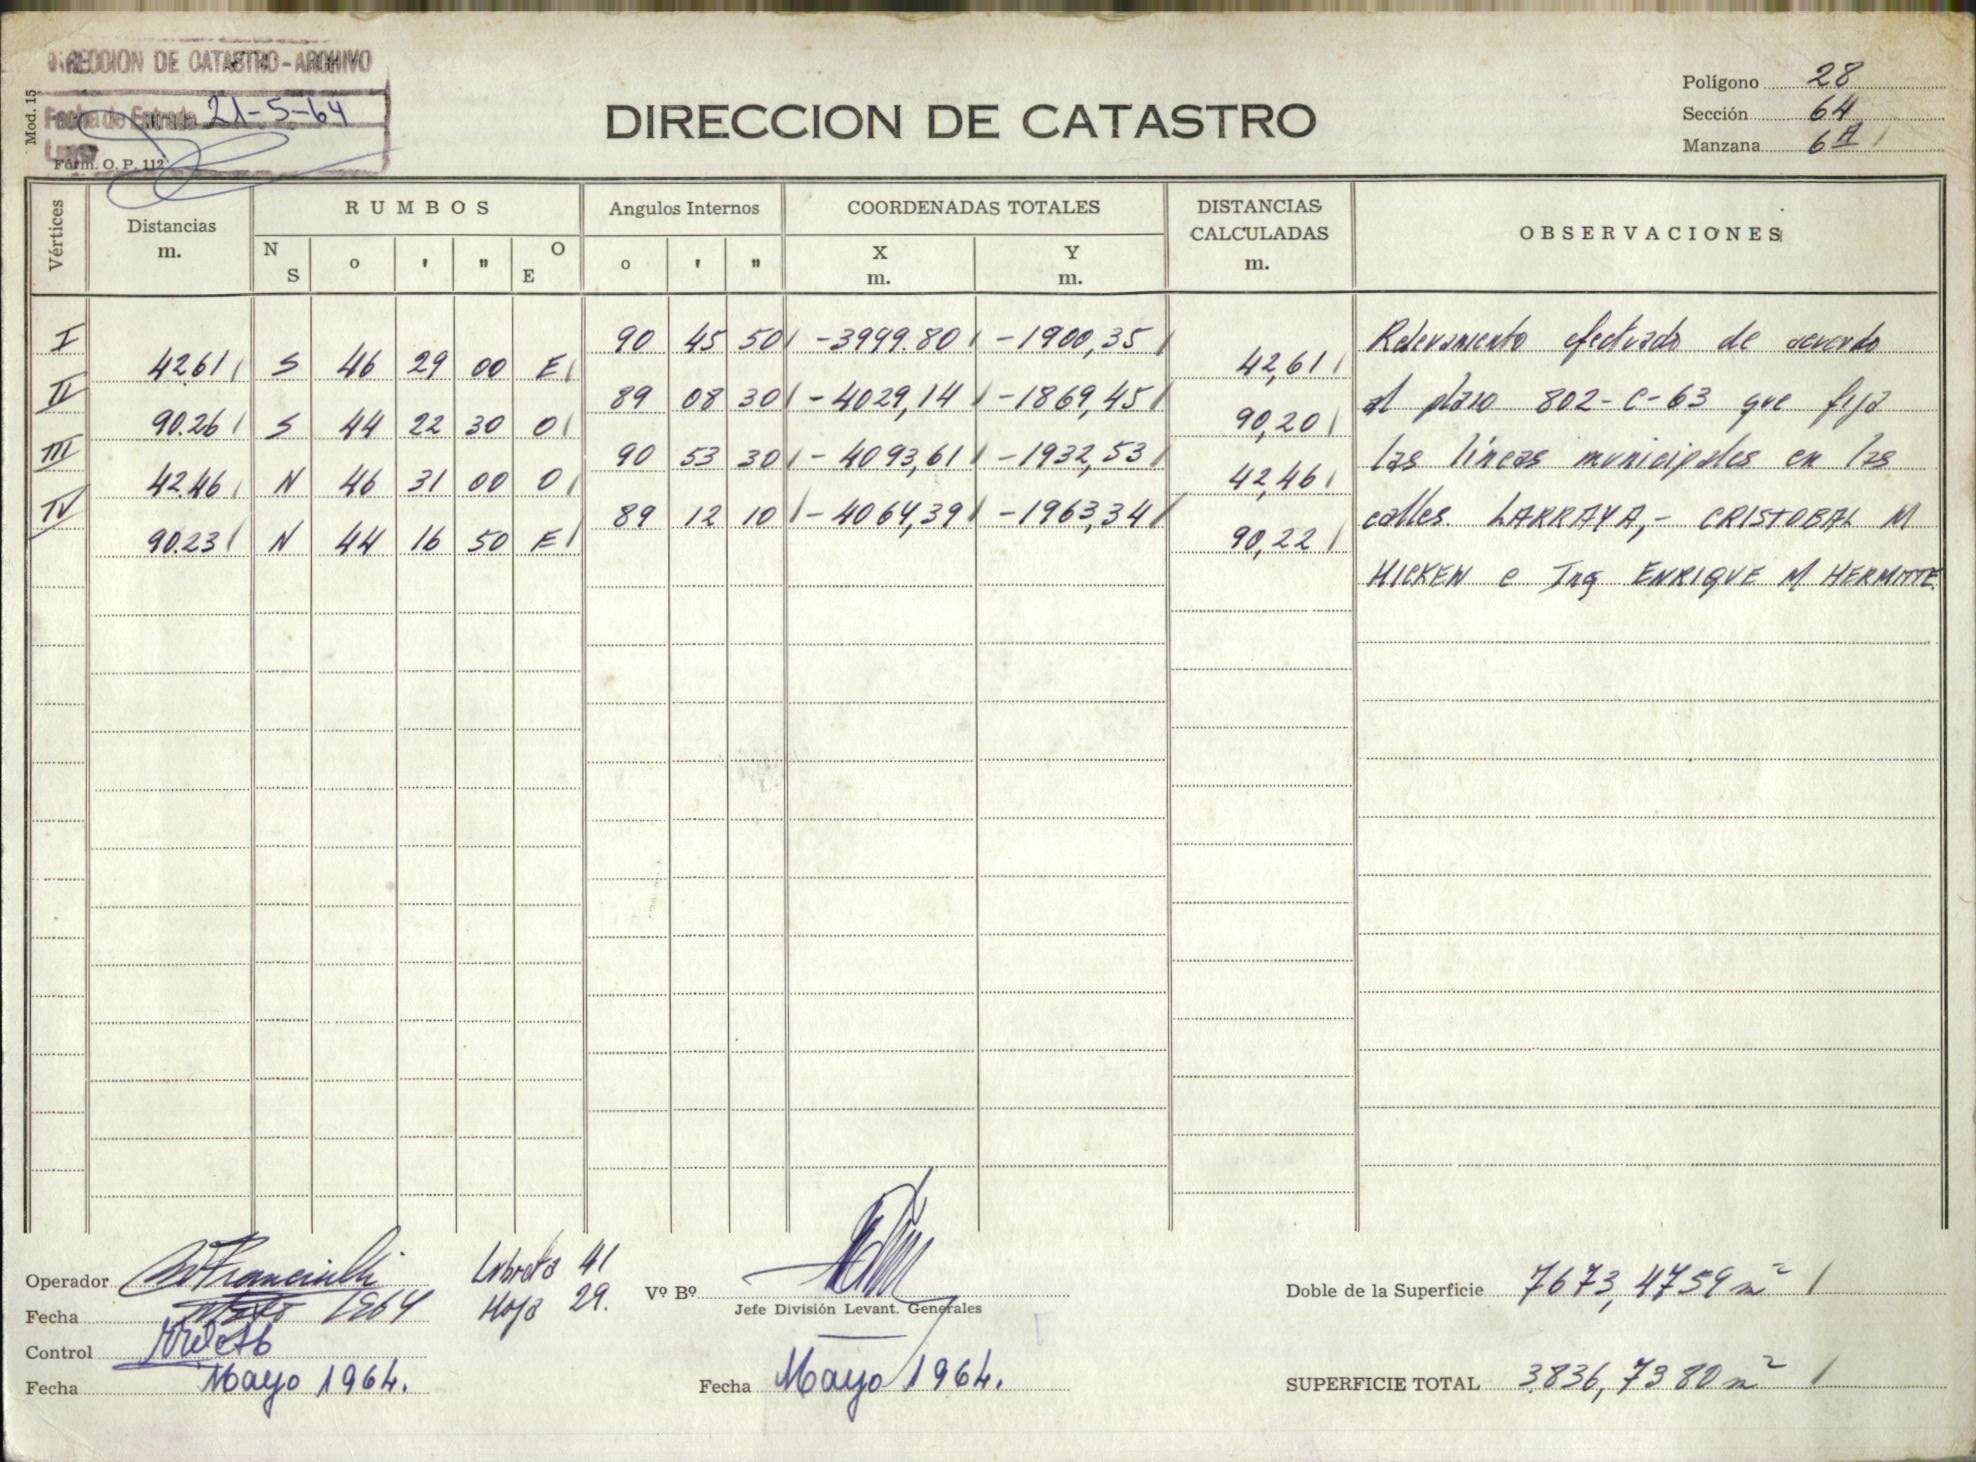 DIRECCION DE CATASTRO - ARCHIVO
Fecha de Entrada 21-5-64
Mod. 15
Form. O. P. 112
DIRECCION DE CATASTRO
Polígono 28
Sección 64
Manzana 6A
Vértices
Distancias m.
RUMBOS
N S ° ' " O E
Angulos Internos
° ' "
COORDENADAS TOTALES
X m. Y m.
DISTANCIAS CALCULADAS m.
OBSERVACIONES
I 90 45 50 -3999.80 -1900,35
42.61 S 46 29 00 E 42,61
II 89 08 30 -4029,14 -1869,45
90.26 S 44 22 30 O 90,20
III 90 53 30 -4093,61 -1932,53
42.46 N 46 31 00 O 42,46
IV 89 12 10 -4064,39 -1963,34
90.23 N 44 16 50 E 90,22
Relevamiento efectuado de acuerdo
al plano 802-C-63 que fija
las líneas municipales en las
calles. LARRAYA,- CRISTOBAL M
HICKEN e Ing ENRIQUE M HERMITTE.
Operador
Fecha 1964
Control
Fecha Mayo 1964.
Libreta 41
Hoja 29.
Vº Bº
Jefe División Levant. Generales
Fecha Mayo 1964.
Doble de la Superficie 7673,4759 m²
SUPERFICIE TOTAL 3836,7380 m²